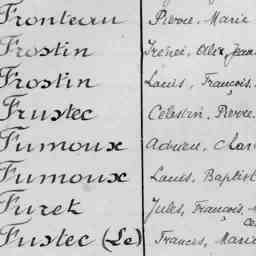 Fronteau Pierre, Marie
Frostin Irénée, Olix, Jean
Frostin Louis, François,
Frustec Célestin, Pierre
Fumoux Adrien, Char
Fumoux Louis, Baptist
Furet Jules, François,
Fustec (Le) Frances, Marie